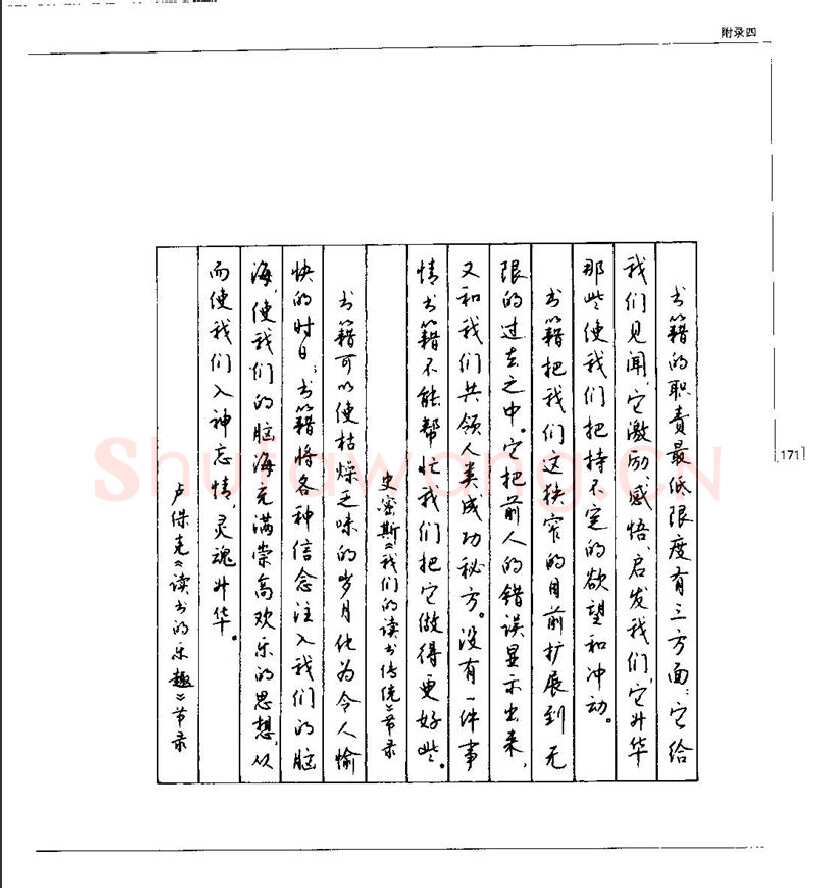 附录四
书籍的职责最低限度有三方面:它给
我们见闻,它激励感悟、启发我们,它升华
那些使我们把持不定的欲望和冲动。
书籍把我们这狭窄的目前扩展到无
限的过去之中。它把前人的错误显示出来,
又和我们共领人类成功秘方。没有一件事
情书籍不能帮忙我们把它做得更好些。
史密斯《我们的读书传统》节录
书籍可以使枯燥乏味的岁月化为令人愉
快的时日;书籍将各种信念注入我们的脑
海,使我们的脑海充满崇高欢乐的思想,从
而使我们入神忘情,灵魂升华。
卢保克《读书的乐趣》节录
171
Shufawang.CN